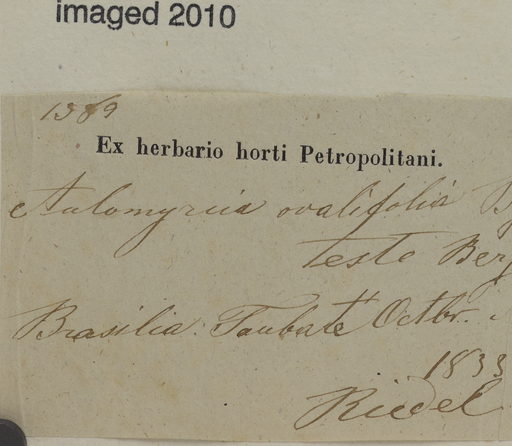 imaged 2010
1389
Ex herbario horti Petropolitani.
Aulomyrcia ovalifolia
teste Berg
Brasilia: Taubaté Octbr.
1833
Riedel